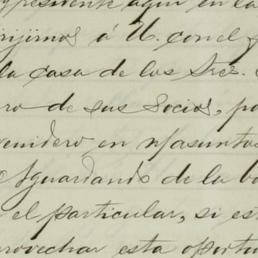 presente aqui en la
rijirnos á U. con el
la casa de los Sres.
ro de sus Socios, po
venidero en n/asuntos
Aguardando de la bo
el particular, si es
rovechar esta oportu